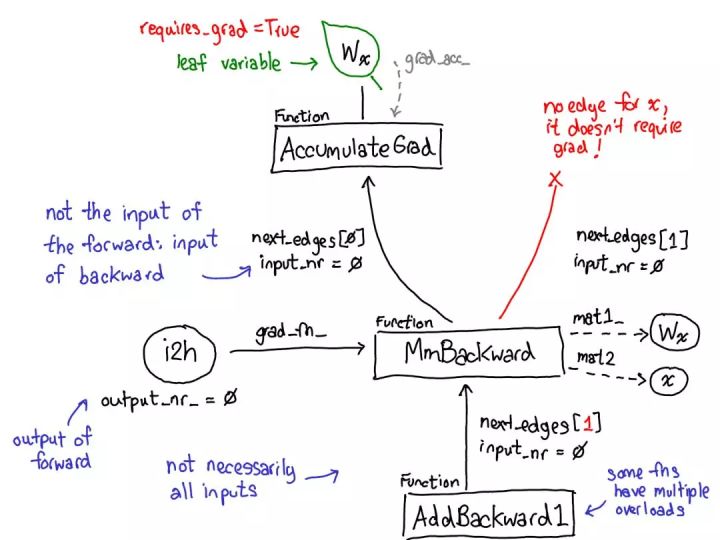 requires_grad = True
leaf variable →
Wx
grad_acc_
Function
AccumulateGrad
no edge for x,
it doesn't require
grad!
x
not the input of
the forward: input
of backward
next_edges[0]
input_nr = 0
next_edges[1]
input_nr = 0
i2h
grad_fn_
output_nr_ = 0
output of
forward
Function
MmBackward
mat1_
Wx
mat2
x
next_edges[1]
input_nr = 0
not necessarily
all inputs
Function
AddBackward1
some fns
have multiple
overloads